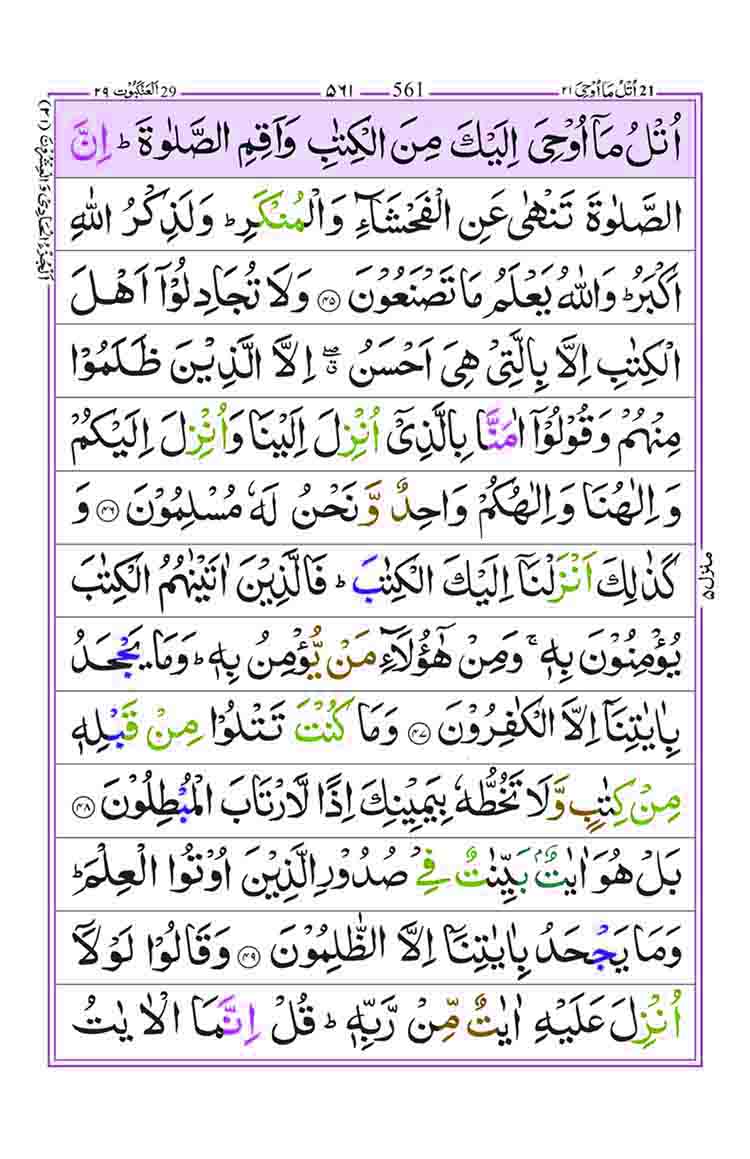 ٢١ اُتْلُ مَاۤ اُوْحِیَ 21 — 561 — ٥٦١ — 29 اَلْعَنْكَبُوْت ٢٩
اُتْلُ مَاۤ اُوْحِیَ اِلَیْكَ مِنَ الْكِتٰبِ وَاَقِمِ الصَّلٰوةَ ؕ اِنَّ
الصَّلٰوةَ تَنْهٰی عَنِ الْفَحْشَآءِ وَالْمُنْكَرِ ؕ وَلَذِكْرُ اللّٰهِ
اَكْبَرُ ؕ وَاللّٰهُ یَعْلَمُ مَا تَصْنَعُوْنَ ۝۴۵ وَلَا تُجَادِلُوْۤا اَهْلَ
الْكِتٰبِ اِلَّا بِالَّتِیْ هِیَ اَحْسَنُ ۖق اِلَّا الَّذِیْنَ ظَلَمُوْا
مِنْهُمْ وَقُوْلُوْۤا اٰمَنَّا بِالَّذِیْۤ اُنْزِلَ اِلَیْنَا وَاُنْزِلَ اِلَیْكُمْ
وَ اِلٰهُنَا وَ اِلٰهُكُمْ وَاحِدٌ وَّ نَحْنُ لَهٗ مُسْلِمُوْنَ ۝۴۶ وَ
كَذٰلِكَ اَنْزَلْنَاۤ اِلَیْكَ الْكِتٰبَ ؕ فَالَّذِیْنَ اٰتَیْنٰهُمُ الْكِتٰبَ
یُؤْمِنُوْنَ بِهٖ ۚ وَمِنْ هٰۤؤُلَآءِ مَنْ یُّؤْمِنُ بِهٖ ؕ وَمَا یَجْحَدُ
بِاٰیٰتِنَاۤ اِلَّا الْكٰفِرُوْنَ ۝۴۷ وَمَا كُنْتَ تَتْلُوْا مِنْ قَبْلِهٖ
مِنْ كِتٰبٍ وَّلَا تَخُطُّهٗ بِیَمِیْنِكَ اِذًا لَّارْتَابَ الْمُبْطِلُوْنَ ۝۴۸
بَلْ هُوَ اٰیٰتٌۢ بَیِّنٰتٌ فِیْ صُدُوْرِ الَّذِیْنَ اُوْتُوا الْعِلْمَ ؕ
وَمَا یَجْحَدُ بِاٰیٰتِنَاۤ اِلَّا الظّٰلِمُوْنَ ۝۴۹ وَقَالُوْا لَوْلَاۤ
اُنْزِلَ عَلَیْهِ اٰیٰتٌ مِّنْ رَّبِّهٖ ؕ قُلْ اِنَّمَا الْاٰیٰتُ
اَلْجُزْءُ الْحَادِیْ وَ الْعِشْرُوْنَ (٢١)
منزل ٥